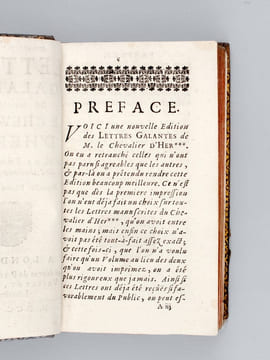 PREFACE.
VOICI une nouvelle Edition
des LETTRES GALANTES de
M. le Chevalier D'HER***.
On en a retranché celles qui n'ont
pas paru si agreables que les autres,
& par-là on a prétendu rendre cette
Edition beaucoup meilleure. Ce n'est
pas que dès la premiere impression
l'on n'eut déja fait un choix sur toutes
les Lettres manuscrites du Che-
valier d'Her***, qu'on avoit entre
les mains; mais enfin ce choix n'a-
voit pas été tout-à-fait assez exact;
& cette fois-ci, que l'on n'a voulu
faire qu'un Volume au lieu des deux
qu'on avoit imprimez, on a été
plus rigoureux que jamais. Ainsi si
ces Lettres ont déja été reçûës si fa-
vorablement du Public, on peut es-
A iij